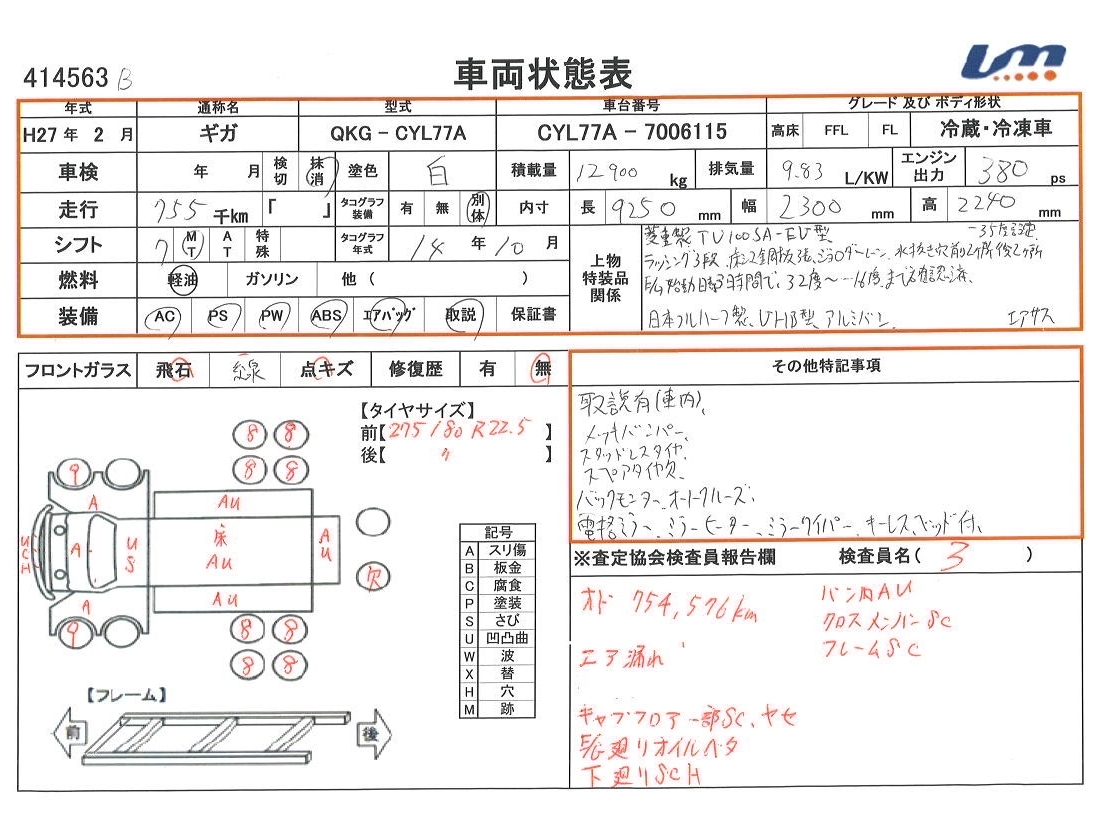 414563 B
車両状態表
UM
年式 通称名 型式 車台番号 グレード 及び ボディ形状
H27 年 2 月 ギガ QKG - CYL77A CYL77A - 7006115 高床 FFL FL 冷蔵・冷凍車
車検 年 月 検切 抹消 塗色 白 積載量 12900 kg 排気量 9.83 L/KW エンジン出力 380 ps
走行 755 千km 「 」 タコグラフ装備 有 無 別体 内寸 長 9250 mm 幅 2300 mm 高 2240 mm
シフト 7 MT AT 特殊 タコグラフ年式 14 年 10 月
燃料 軽油 ガソリン 他 ( )
装備 AC PS PW ABS エアバッグ 取説 保証書
上物特装品関係
菱重製 TU100SA-EU型 -35度設定
ラッシング3段、床ステン鋼板張、ジョロダーレーン、水抜き穴前2ヶ所後2ヶ所
E/G始動日 3時間で、32度~-16度まで確認済、
日本フルハーフ製、UHB型、アルミバン、 エアサス
フロントガラス 飛石 線 点キズ 修復歴 有 無
その他特記事項
取説有(車内)、
メッキバンパー、
スタッドレスタイヤ、
スペアタイヤ欠、
バックモニター、オートクルーズ、
電格ミラー、ミラーヒーター、ミラーワイパー、キーレス、ベッド付、
【タイヤサイズ】
前【275/80 R22.5 】
後【 〃 】
8 8
8 8
9
A AU
U C H A U S 床 AU AU
欠
A AU
9
8 8
8 8
記号
A スリ傷
B 板金
C 腐食
P 塗装
S さび
U 凹凸曲
W 波
X 替
H 穴
M 跡
【フレーム】
前 後
※査定協会検査員報告欄 検査員名( 3 )
オド 754,576km バン内AU
クロスメンバーSC
エア漏れ フレームSC
キャブフロア一部SC、ヤセ
E/G廻りオイルベタ
下廻りSCH